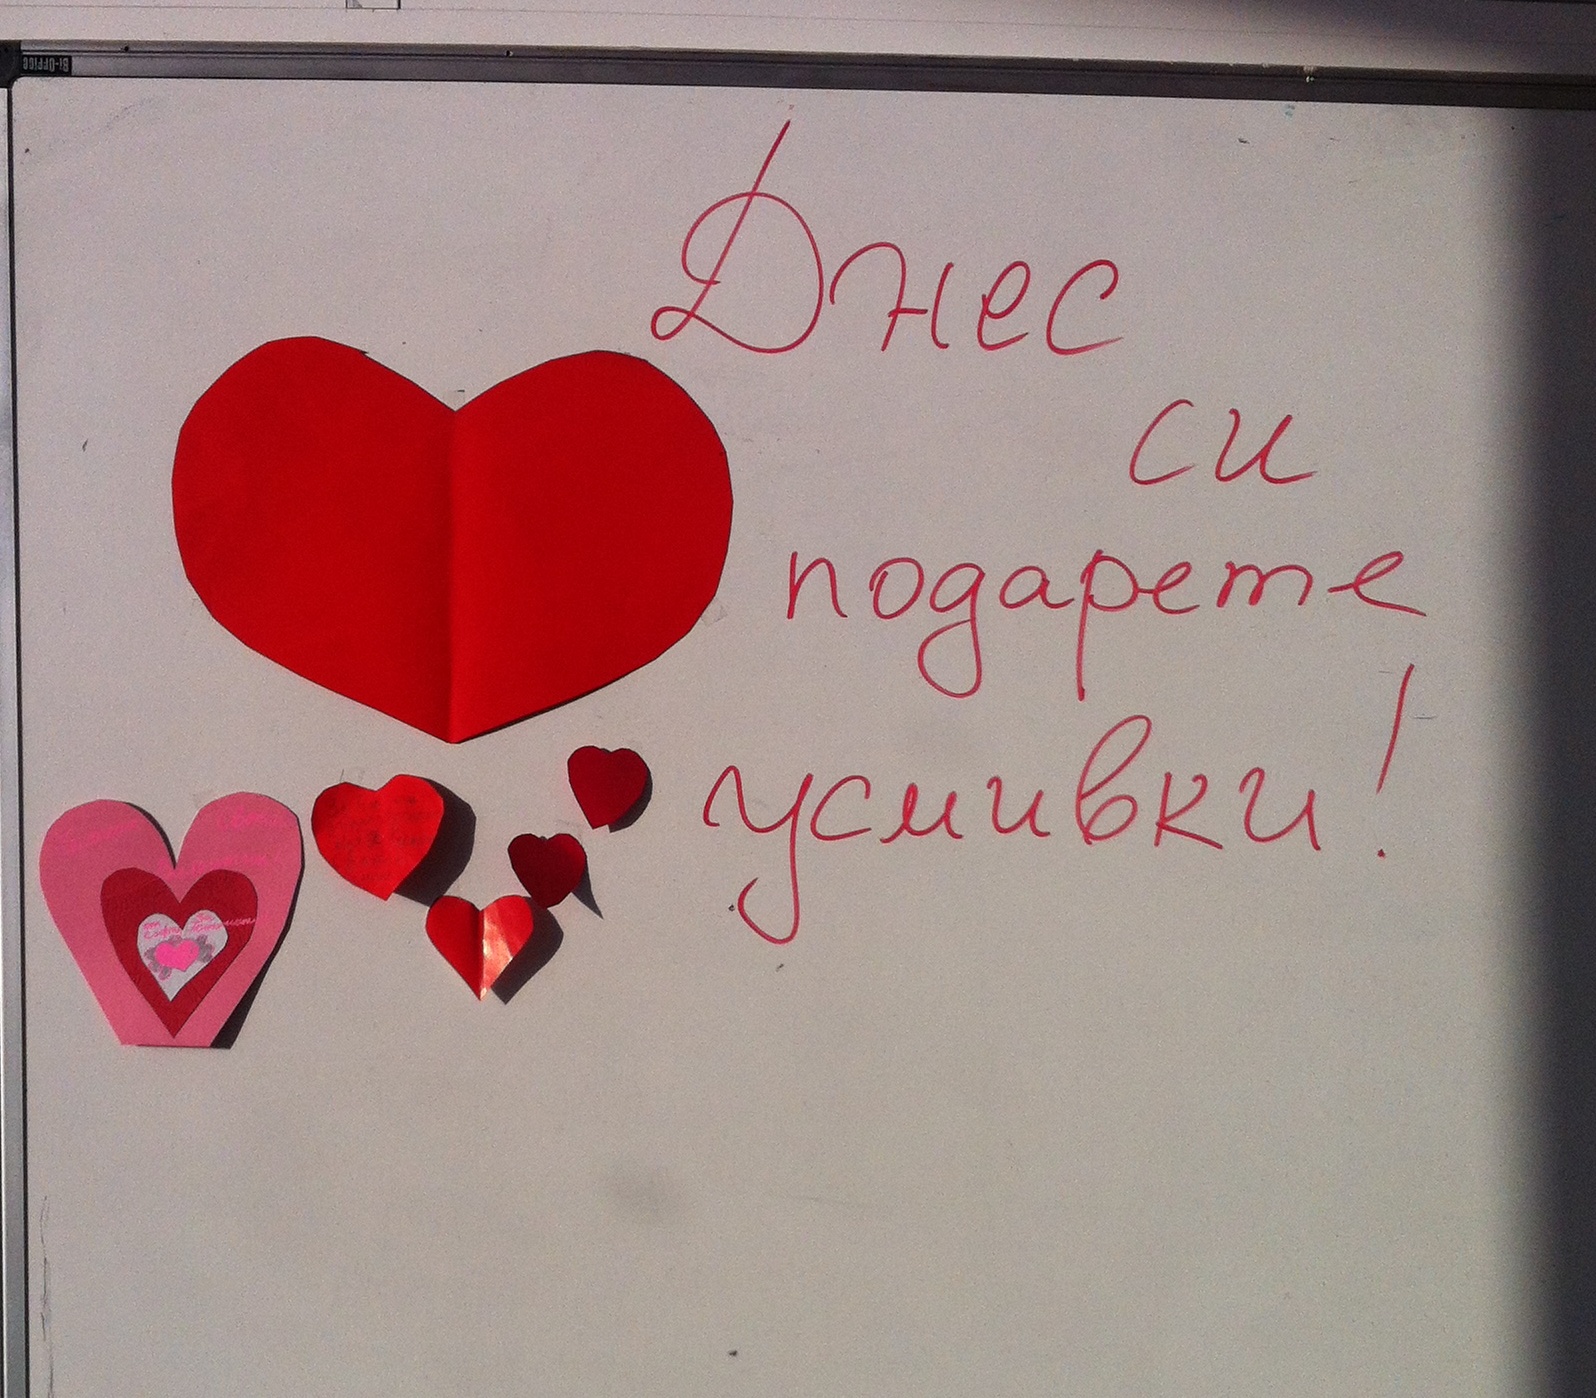 BI-OFFICE
Днес
си
подарете
усмивки!